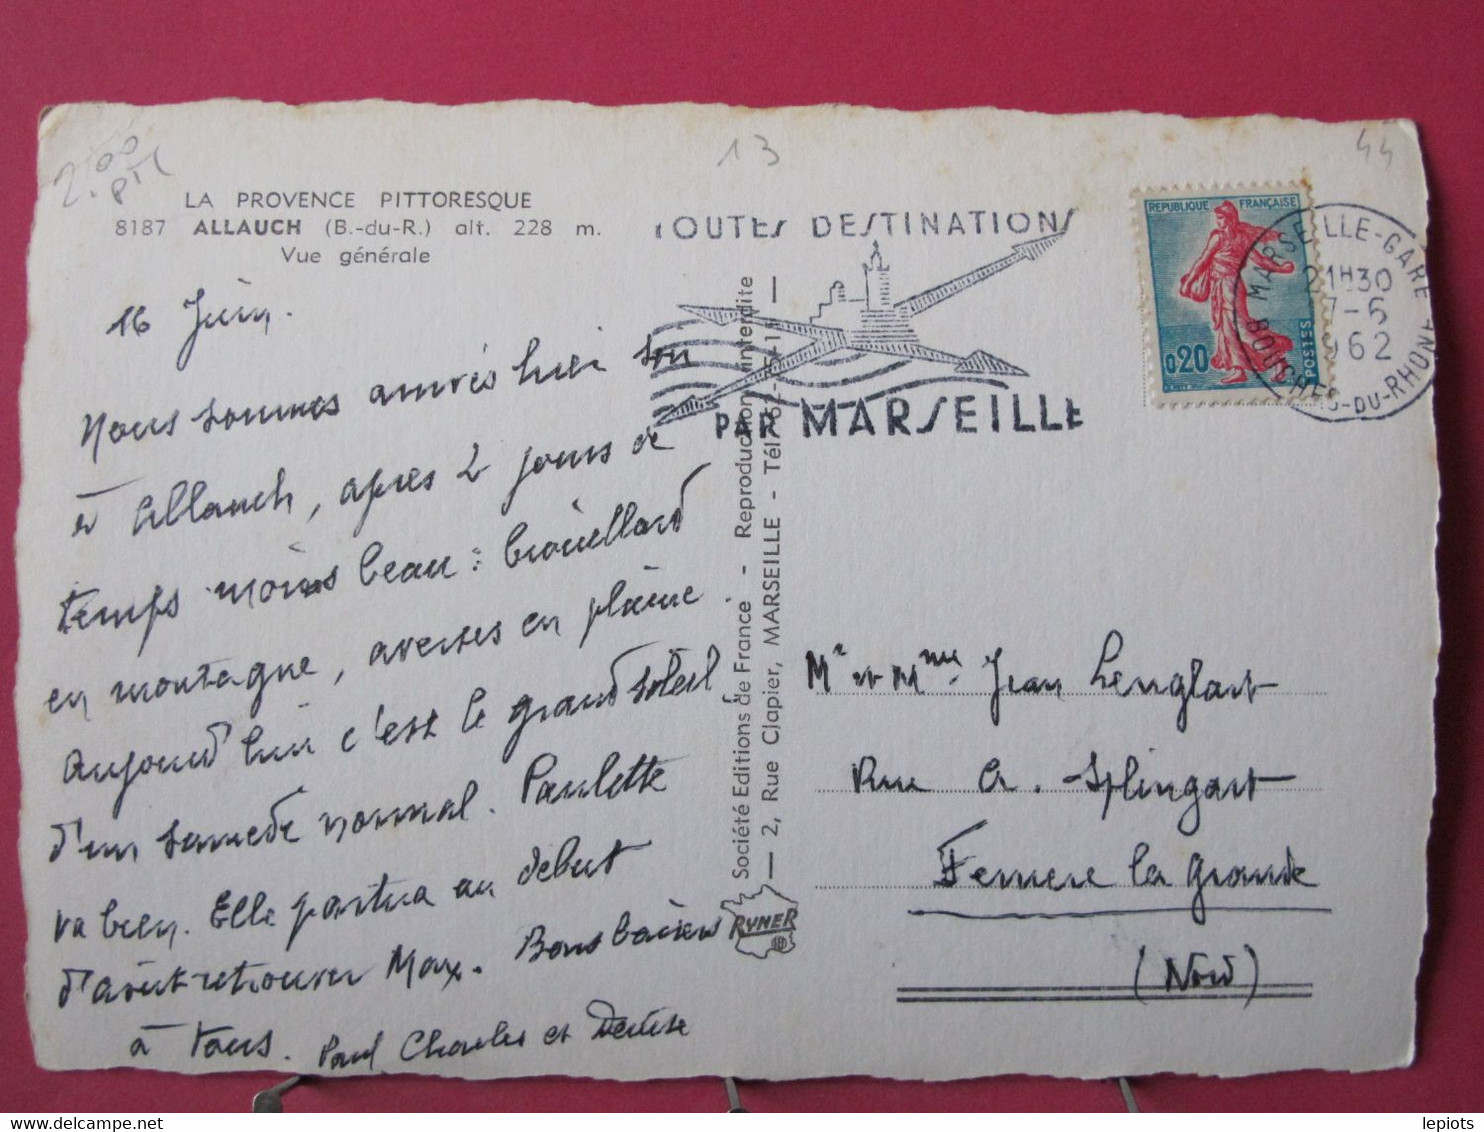 2.00
13
44
LA PROVENCE PITTORESQUE
8187 ALLAUCH (B.-du-R.) alt. 228 m.
Vue générale
16 Juin.
Nous sommes arrivés hier soir
à Allauch, après 2 jours de
temps moins beau : brouillard
en montagne, averses en plaine
aujourd'hui c'est le grand soleil
d'un samedi normal. Paulette
va bien. Elle partira au début
d'août retrouver Max. Bons baisers
à tous. Paul Charles et Denise
TOUTES DESTINATIONS
PAR MARSEILLE
REPUBLIQUE FRANÇAISE
0,20
POSTES
MARSEILLE-GARE
21H30
7-6
1962
BOUCHES-DU-RHONE
Société Editions de France - Reproduction interdite
2, Rue Clapier, MARSEILLE - Tél.
RYNER
Mr et Mme Jean Lenglart
Rue A. Splingart
Ferriere la grande
(Nord)
lepiots